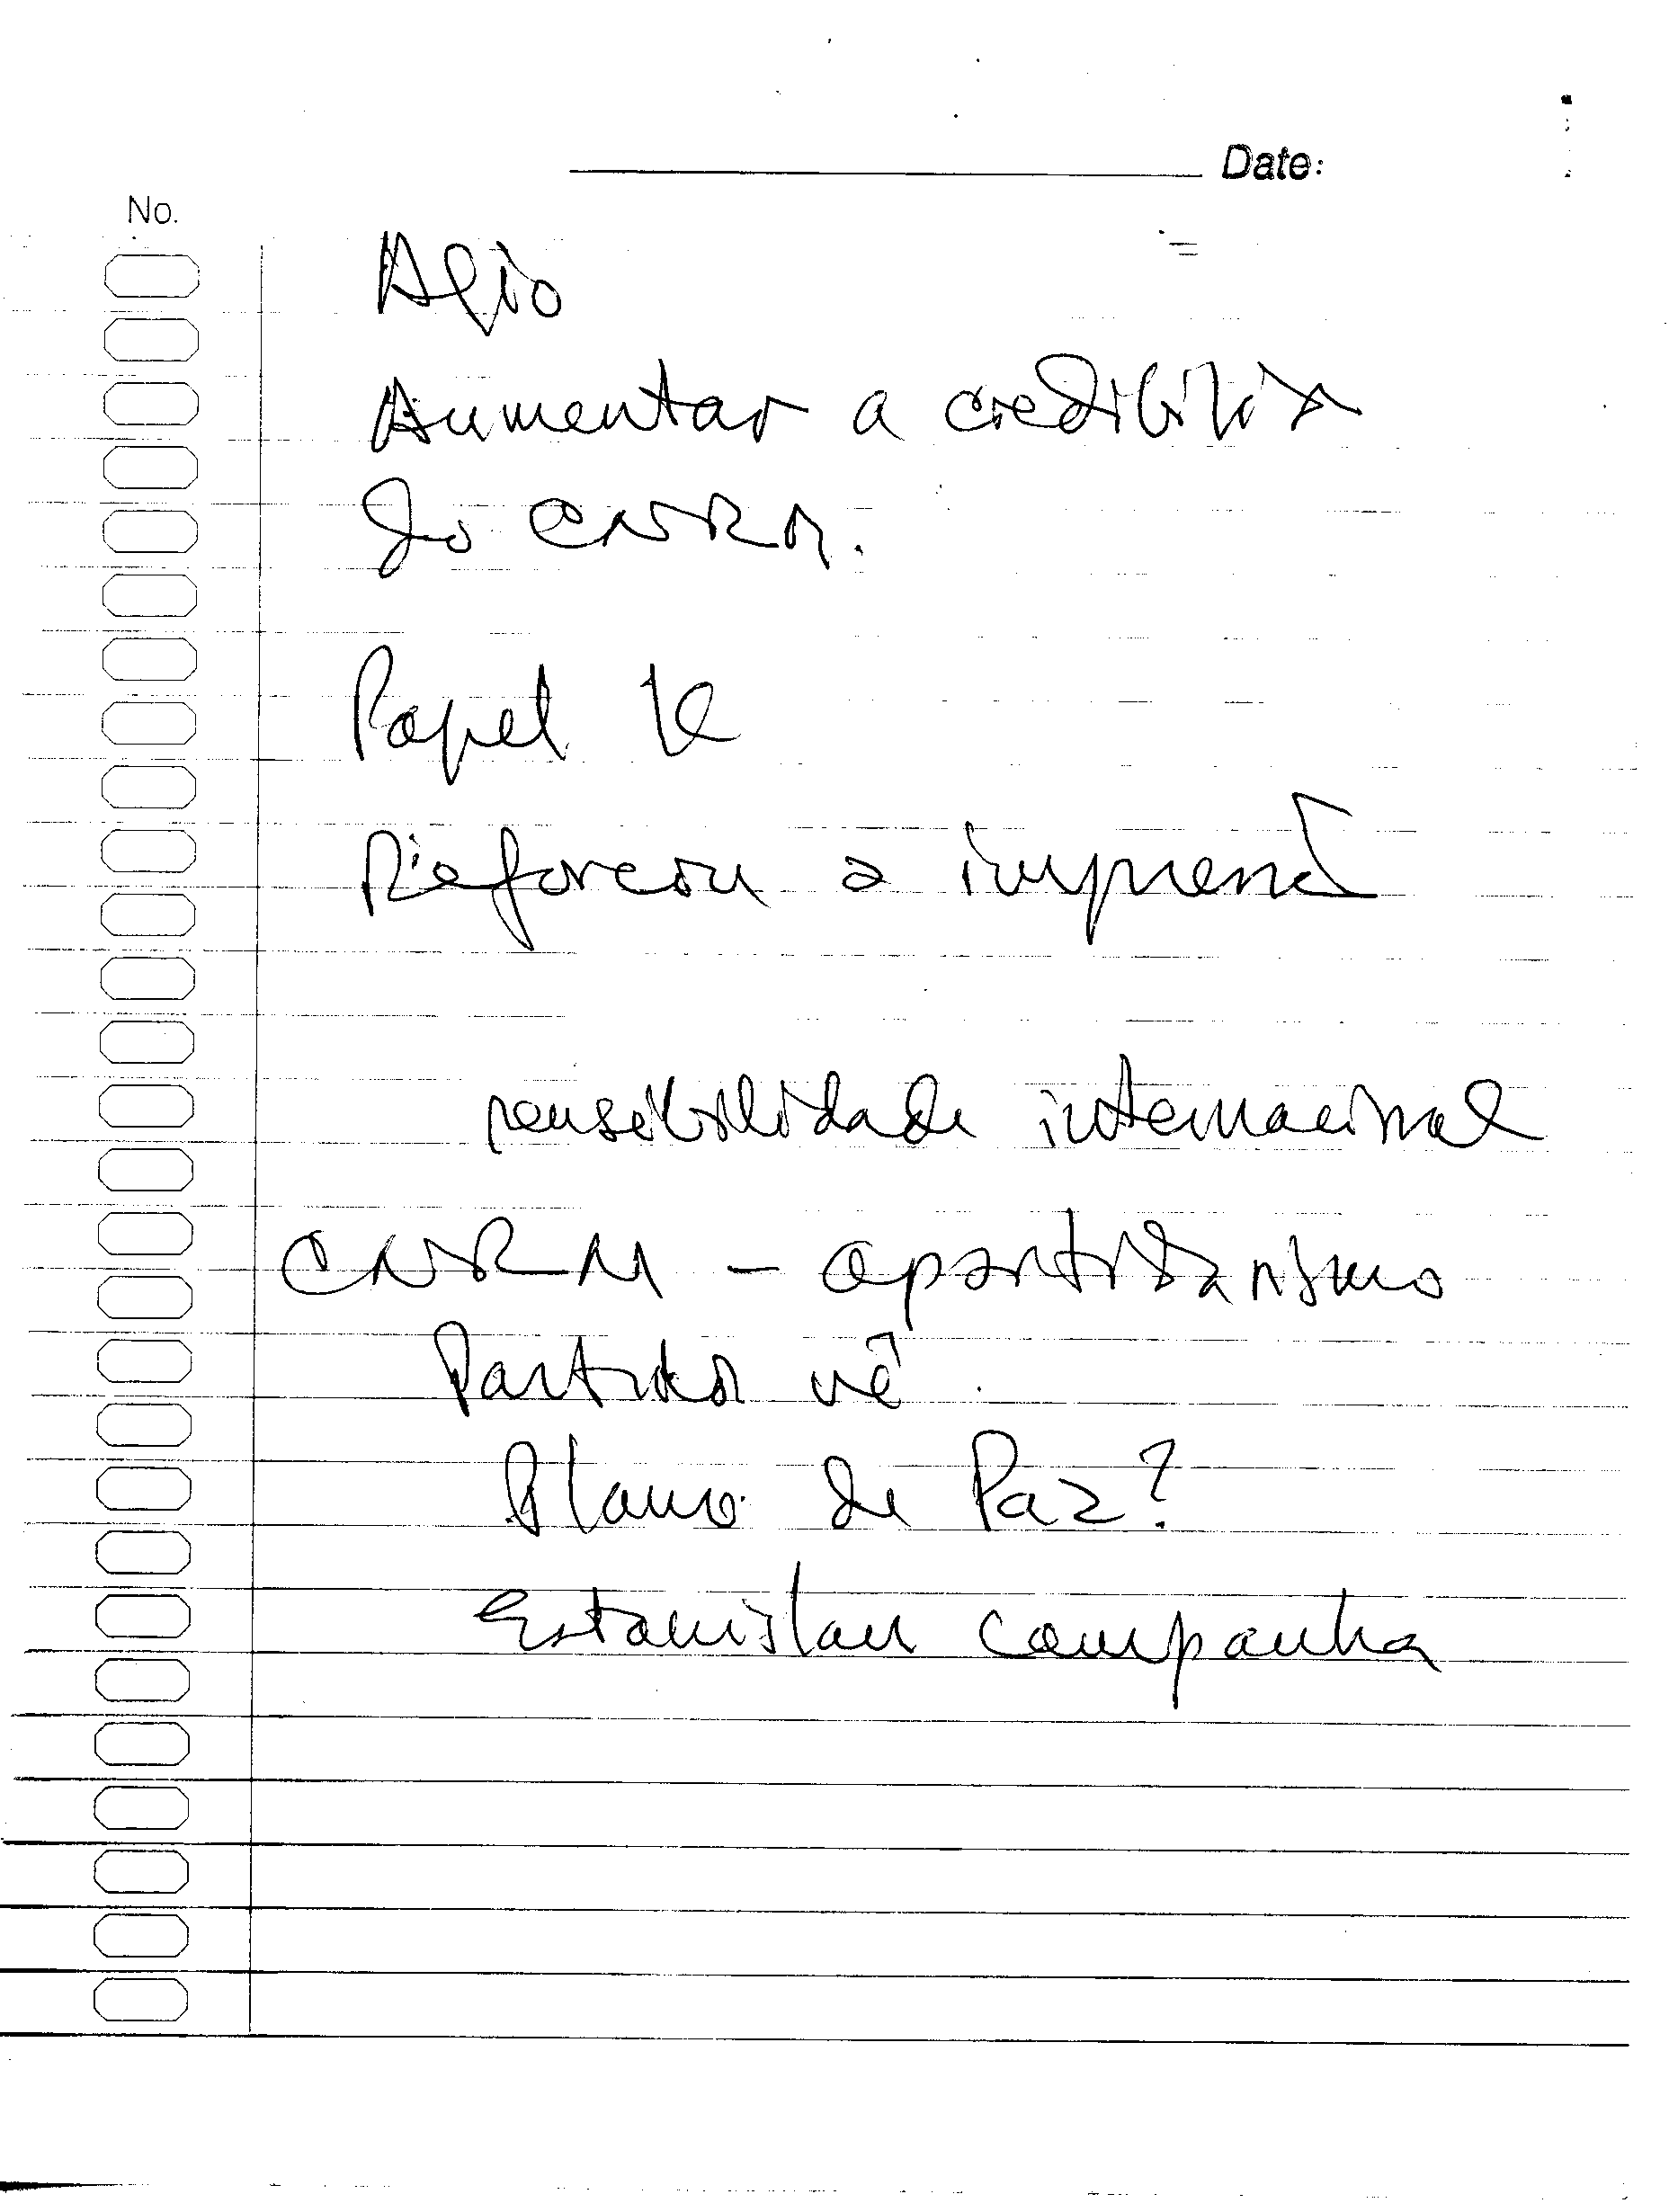 Date:
No.
Apio
Aumentar a credibilid
do CNRM.
Papel
Reforcou a imprensa
sensibilidade internacional
CNRM - apartidarismo
Partidos vê
Plano de Paz?
Estanislau campanha